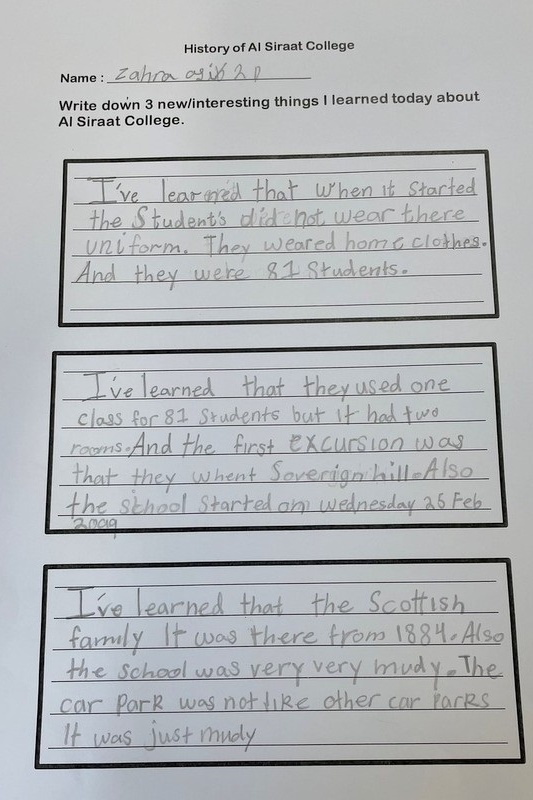 History of Al Siraat College
Name : Zahra asif 2P
Write down 3 new/interesting things I learned today about
Al Siraat College.
I've learned that when it started
the Student's did not wear there
uniform. They weared home clothes.
And they were 81 Students.
I've learned that they used one
class for 81 Students but it had two
rooms. And the first excursion was
that they whent Soverign hill. Also
the school Started on wednesday 25 Feb
2009
I've learned that the Scottish
family It was there from 1884. Also
the school was very very mudy. The
car park was not like other car parks
It was just mudy